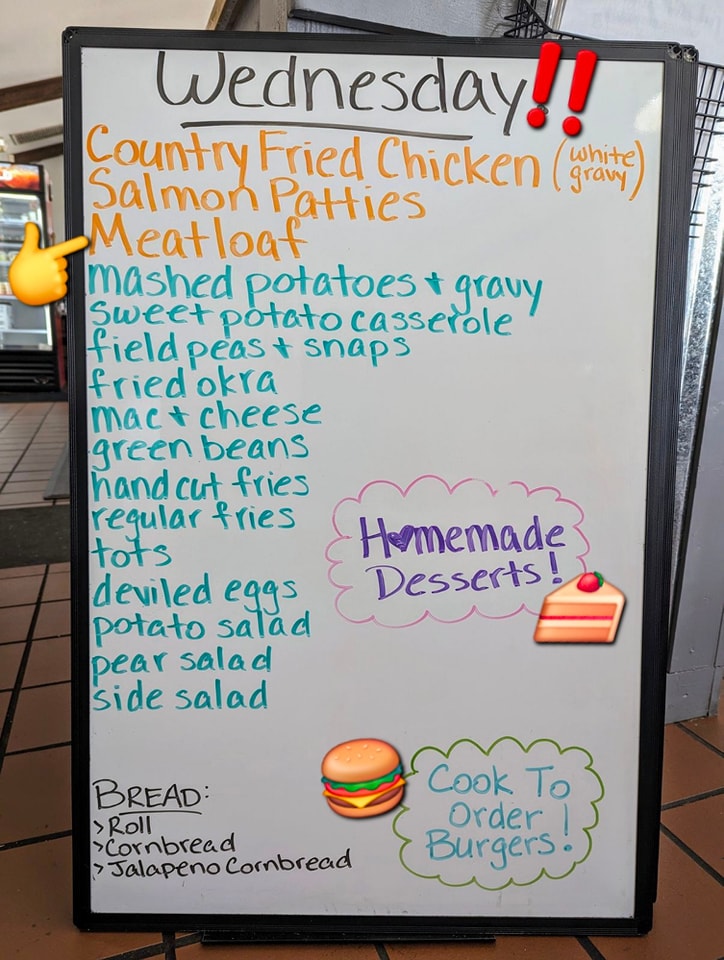 Wednesday‼
Country Fried Chicken (white gravy)
Salmon Patties
Meatloaf
mashed potatoes + gravy
sweet potato casserole
field peas + snaps
fried okra
mac + cheese
green beans
hand cut fries
regular fries
tots
deviled eggs
potato salad
pear salad
side salad
Homemade
Desserts!
BREAD:
>Roll
>Cornbread
>Jalapeno Cornbread
Cook To
Order
Burgers!